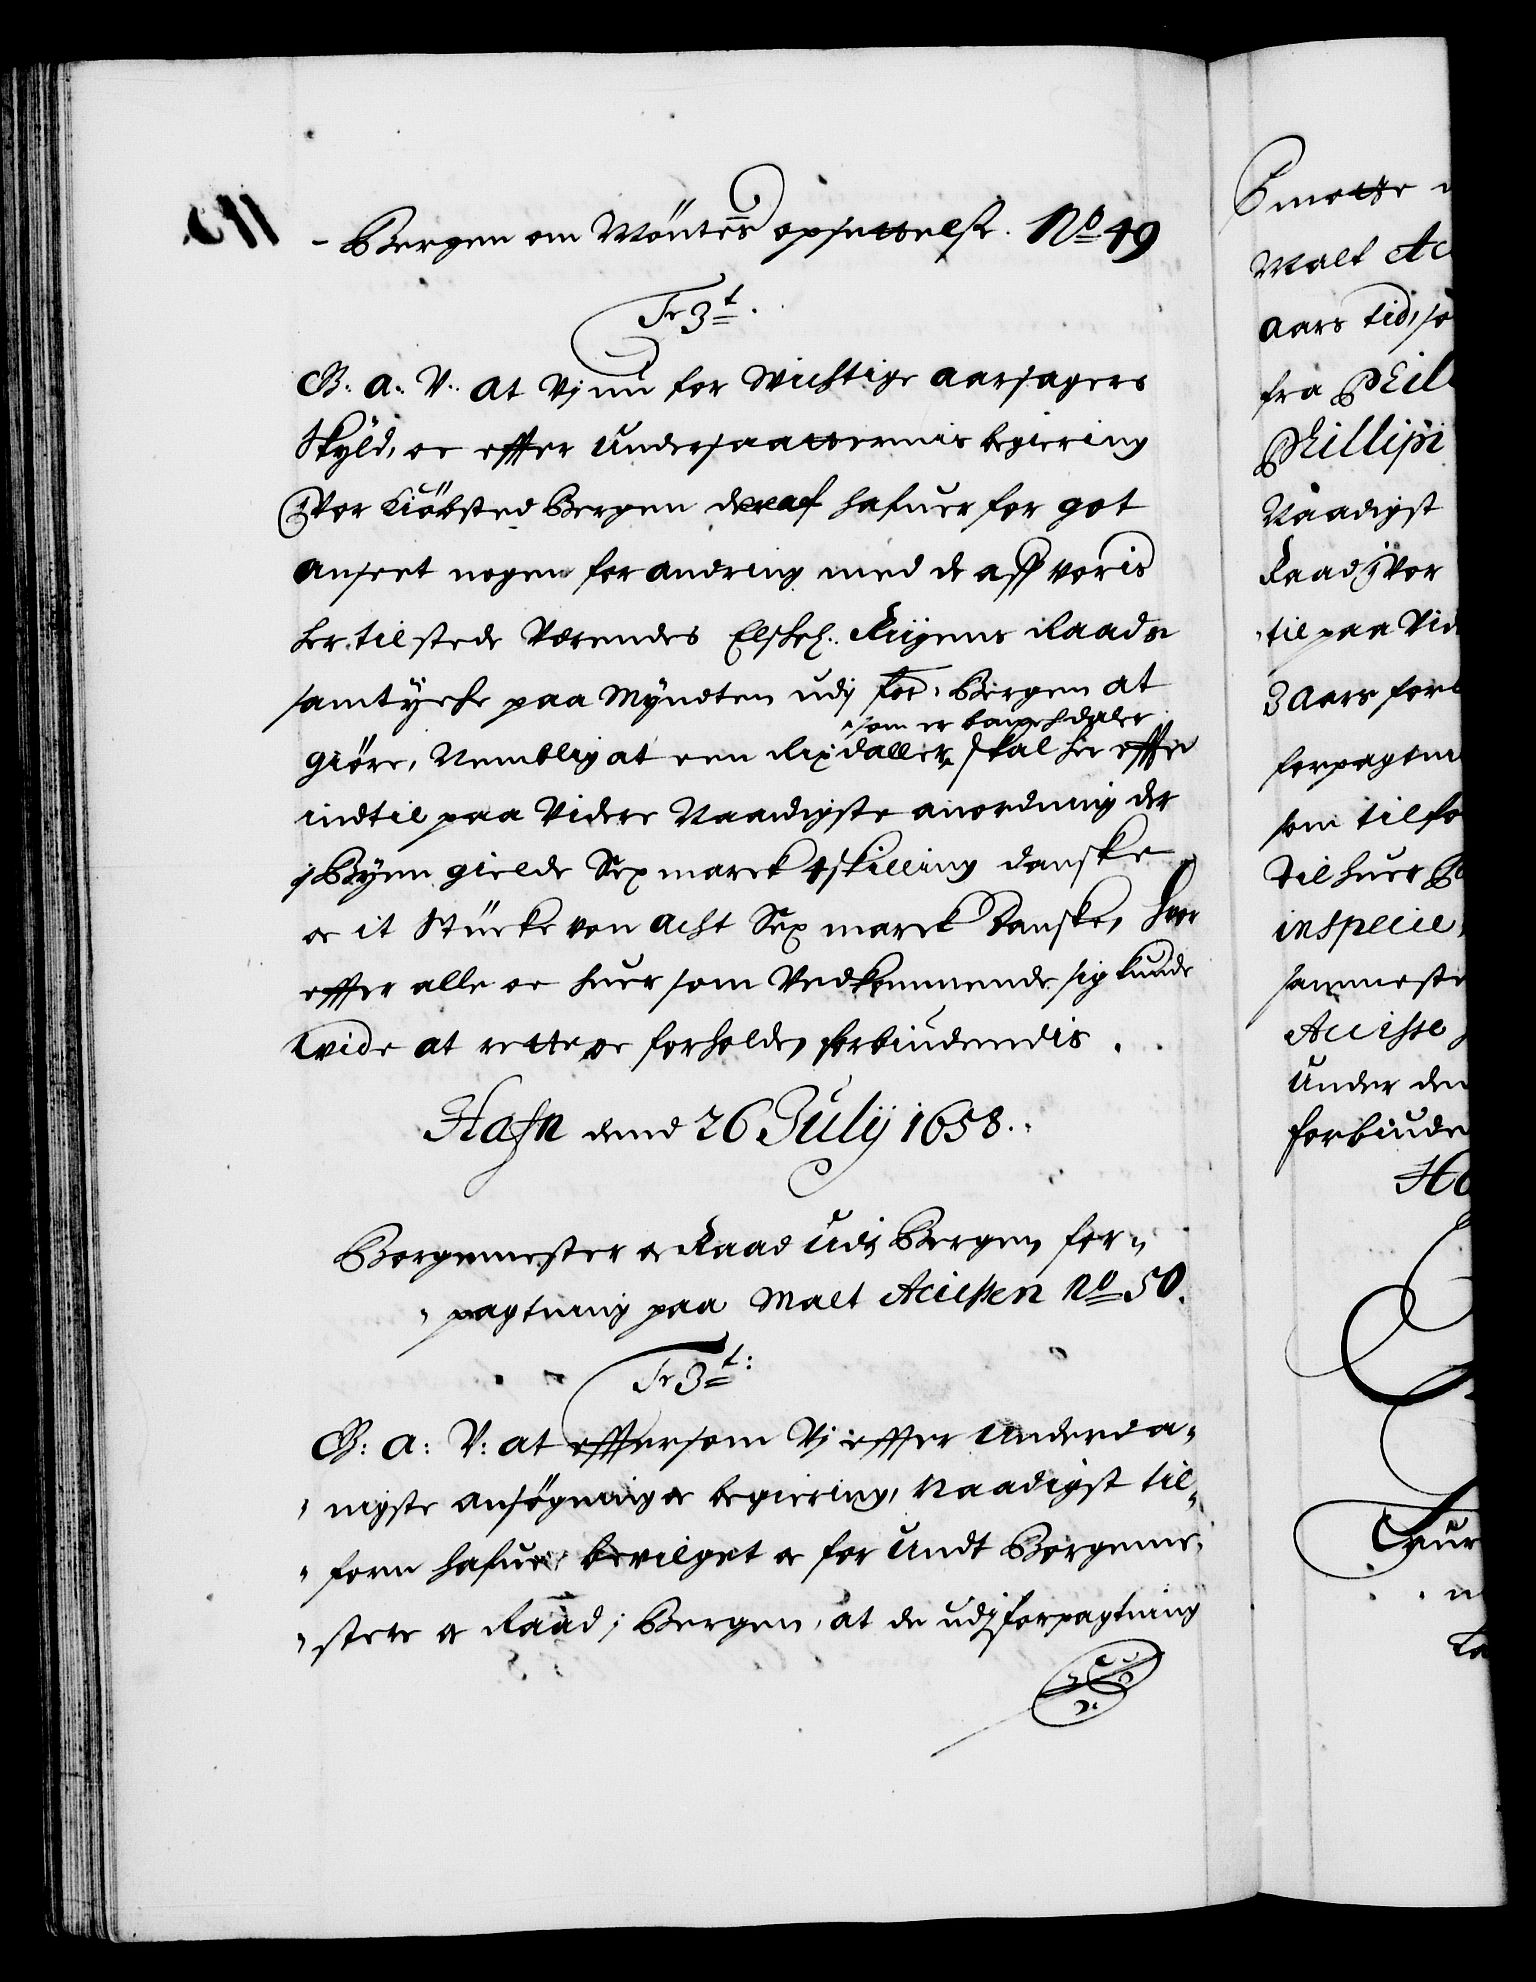 Bergen om Möntes opsettelse. No 49
Fr 3t.
G. a. V. at Vj nu for Wichtige aarsagers
Skyld, oc effter Undersaatternis begiering
J Vor Kiöbsted Bergen deraf hafuer for got
anseet nogen forandring med de aff voris
her tilstede Værendes Elskel. Rigens Raads
samtyche paa Myndten udj for: Bergen at
som er banchdaler
giöre, Nemblig at een Rixdaller skal her effter
indtil paa Videre Naadigste anordning der
j Byen gielde Sex marck 4 skilling danske
oc it Stücke von acht Sex marck Danske, hvor
effter alle oc huer som Vedkommende sig kunde
wide at rette oc forholde, forbiudendis.
Hafn dend 26 Julij 1658.
Borgemester oc Raad Udj Bergen for-
pagtning paa Malt Acissen No 50.
Fr 3t:
G: a: V: at eftersom Vj effter Underda-
nigste ansögning oc begiering, Naadigst til-
forn hafuer bevilget oc for Undt Borgeme-
stere oc Raad j Bergen, at de udj forpagtning
Smotte
Malt Ac
Aars tid, so
fra Phil
Phillipi
Naadigst
Raad J Vor
til paa Vid
3 Aars for
forpagtni
som tilfo
Til huer
inspecie,
sammeste
Accisse
Under den
forbiude
Ha